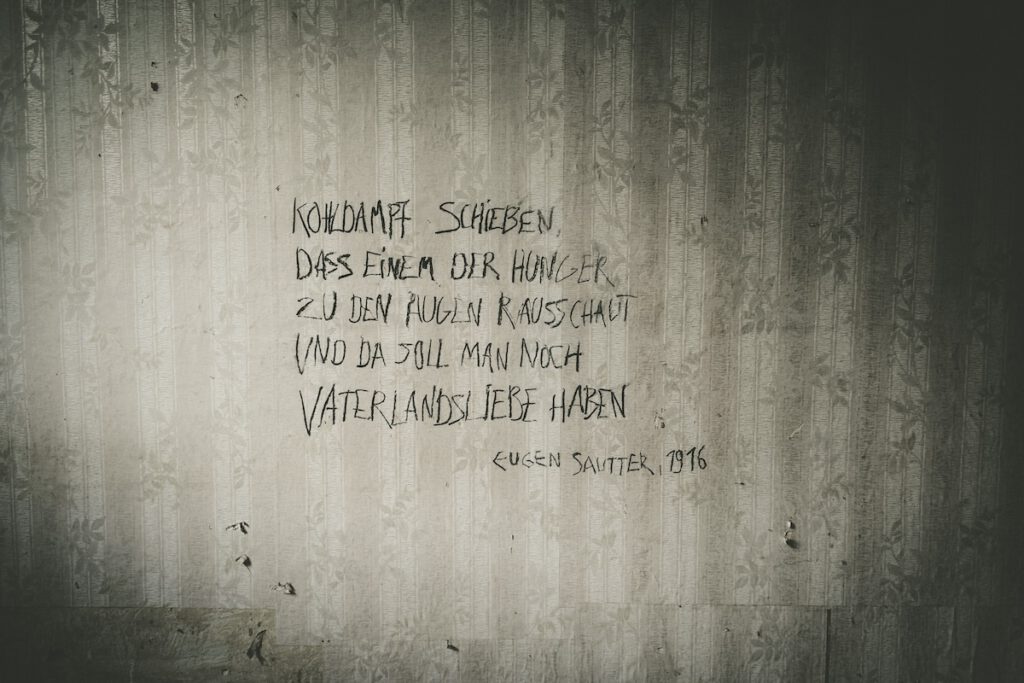 KOHLDAMPF SCHIEBEN,
DASS EINEM DER HUNGER
ZU DEN AUGEN RAUSSCHAUT
UND DA SOLL MAN NOCH
VATERLANDSLIEBE HABEN
EUGEN SAUTTER, 1916